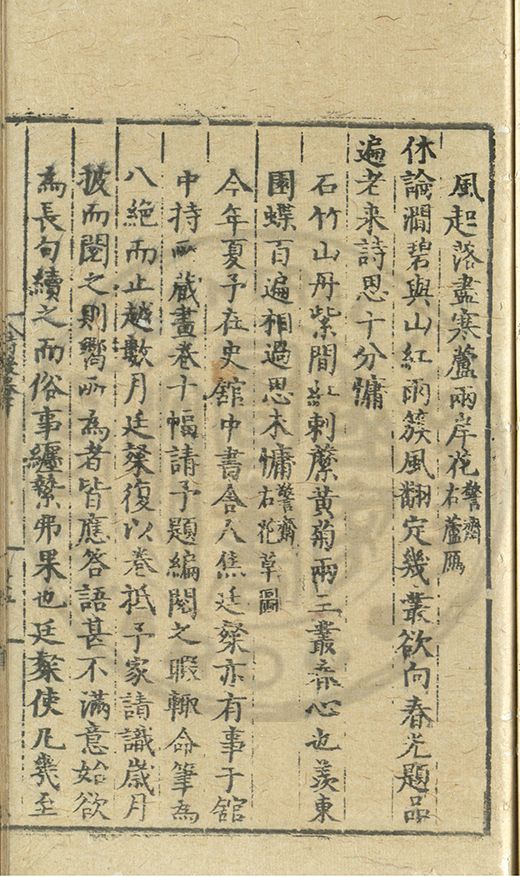 風起落盡寒蘆兩岸花警齋右蘆鴈
休論澗碧與山紅雨簇風翻定幾叢欲向春光題品
遍老来詩思十分慵
石竹山丹紫間紅刺䕷黄菊兩三叢春心也羡東
園蝶百遍相過思未慵警齋右花草圖
今年夏予在史舘中書舍人焦廷粲亦有事于舘
中持所藏畫卷十幅請予題編閱之暇輒命筆為
八絶而止越數月廷粲復以卷抵予家請識歲月
披而閱之則嚮所為者皆應答語甚不滿意始欲
為長句續之而俗事纏縈弗果也廷粲使凡幾至